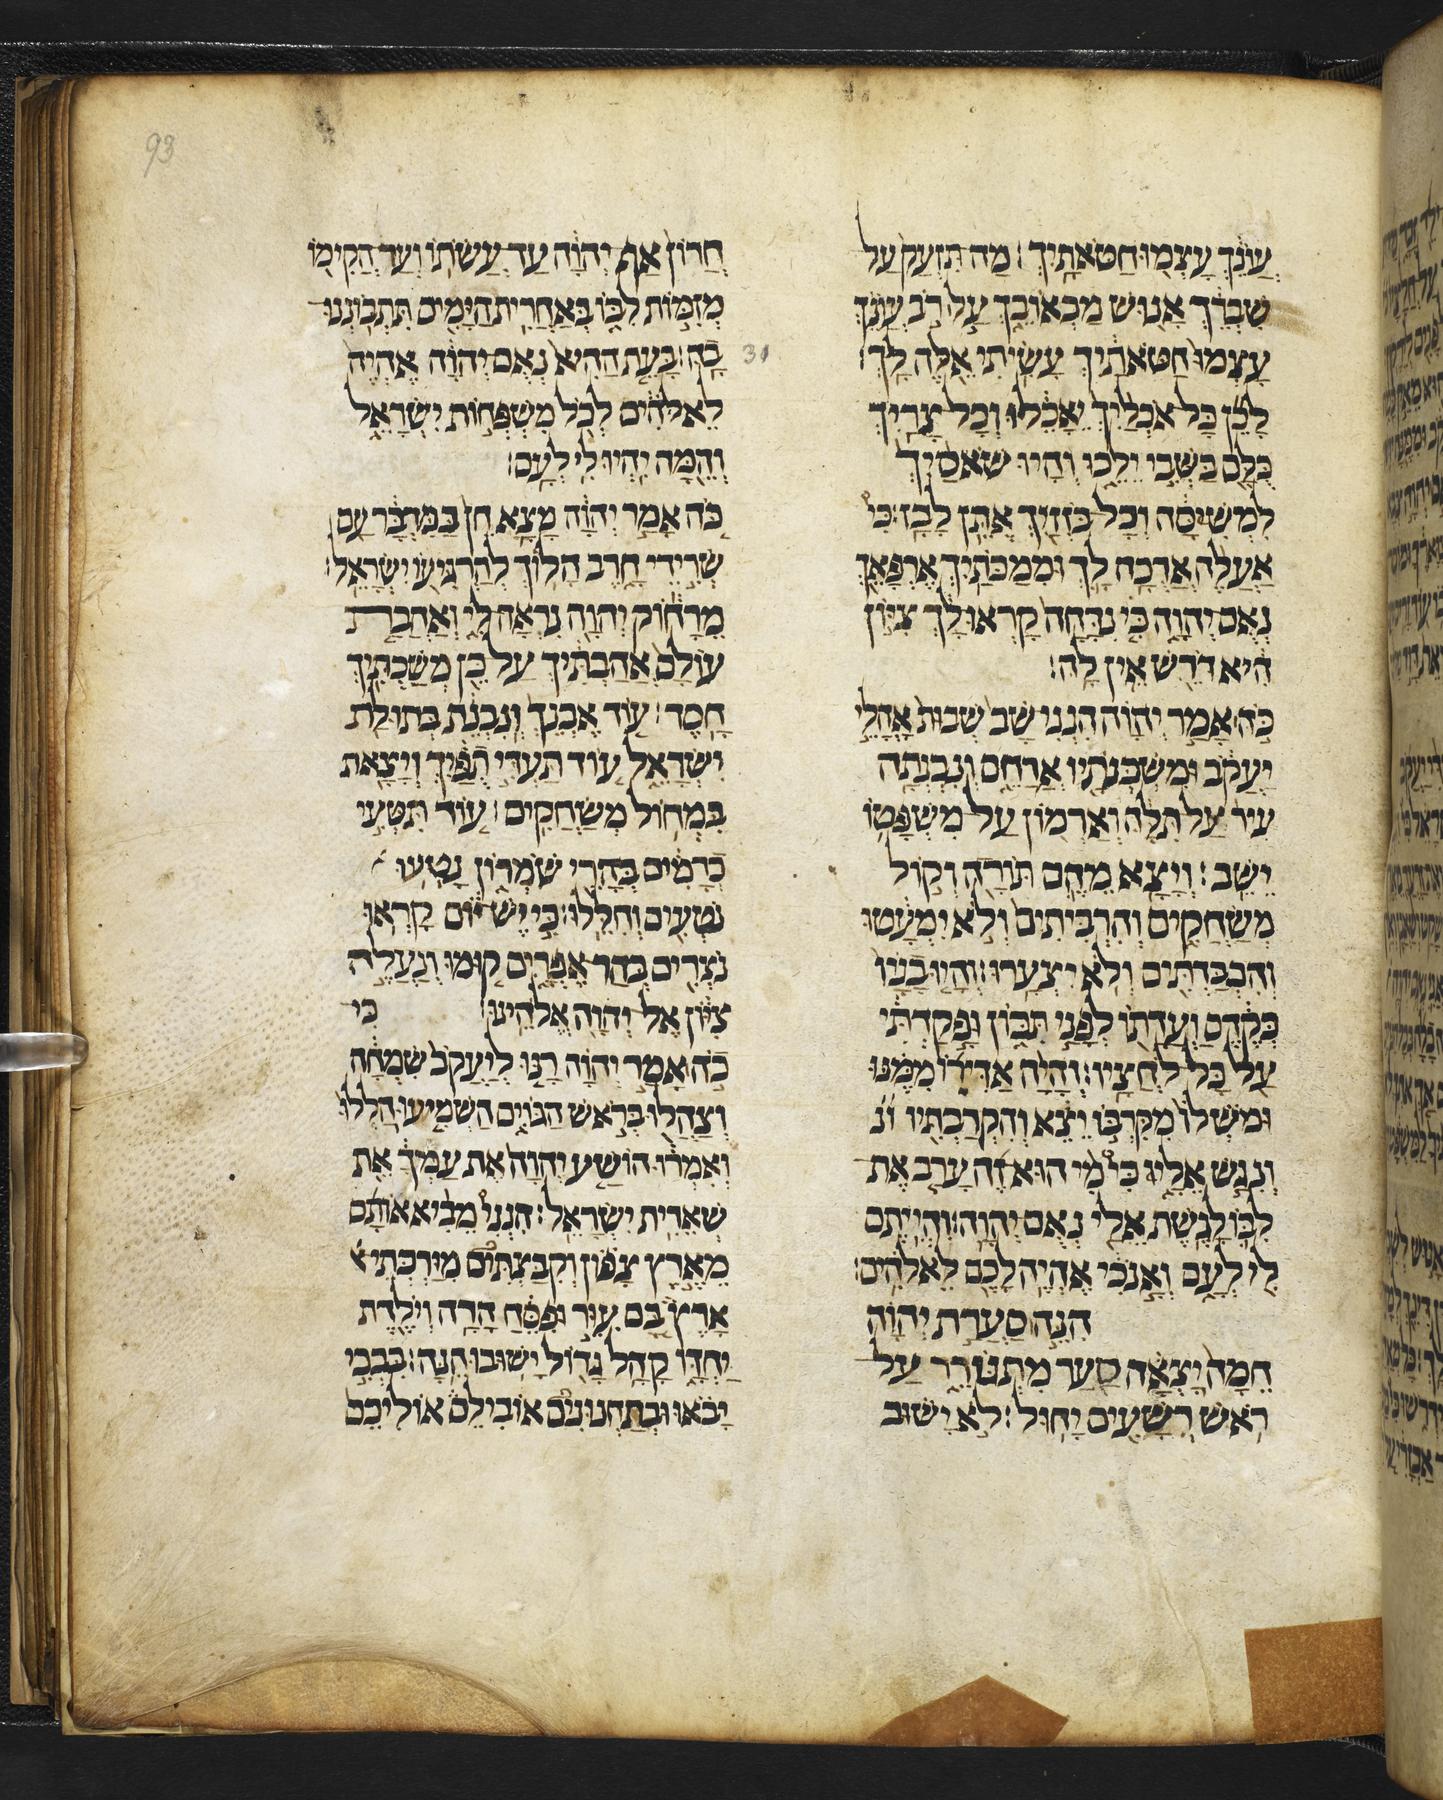 93
עֲוֺנֵךְ עָצְמוּ חַטֹּאתָיִךְ׃ מַה תִּזְעַק עַל
שִׁבְרֵךְ אָנוּשׁ מַכְאוֹבֵךְ עַל רֹב עֲוֺנֵךְ
עָצְמוּ חַטֹּאתַיִךְ עָשִׂיתִי אֵלֶּה לָךְ׃
לָכֵן כָּל אֹכְלַיִךְ יֵאָכֵלוּ וְכָל צָרַיִךְ
כֻּלָּם בַּשְּׁבִי יֵלֵכוּ וְהָיוּ שֹׁאסַיִךְ
לִמְשִׁיסָּה וְכָל בֹּזְזַיִךְ אֶתֵּן לָבַז׃ כִּי
אַעֲלֶה אֲרֻכָה לָךְ וּמִמַּכּוֹתַיִךְ אֶרְפָּאֵךְ
נְאֻם יְהוָה כִּי נִדָּחָה קָרְאוּ לָךְ צִיּוֹן
הִיא דֹּרֵשׁ אֵין לָהּ׃
כֹּה אָמַר יְהוָה הִנְנִי שָׁב שְׁבוּת אָהֳלֵי
יַעֲקֹב וּמִשְׁכְּנֹתָיו אֲרַחֵם וְנִבְנְתָה
עִיר עַל תִּלָּהּ וְאַרְמוֹן עַל מִשְׁפָּטוֹ
יֵשֵׁב׃ וְיָצָא מֵהֶם תּוֹרָה וְקוֹל
מְשַׂחֲקִים וְהִרְבִּיתִים וְלֹא יִמְעָטוּ
וְהִכְבַּדְתִּים וְלֹא יִצְעָרוּ׃ וְהָיוּ בָנָיו
כְּקֶדֶם וַעֲדָתוֹ לְפָנַי תִּכּוֹן וּפָקַדְתִּי
עַל כָּל לֹחֲצָיו׃ וְהָיָה אַדִּירוֹ מִמֶּנּוּ
וּמֹשְׁלוֹ מִקִּרְבּוֹ יֵצֵא וְהִקְרַבְתִּיו
וְנִגַּשׁ אֵלָי כִּי מִי הוּא זֶה עָרַב אֶת
לִבּוֹ לָגֶשֶׁת אֵלַי נְאֻם יְהוָה׃ וִהְיִיתֶם
לִי לְעָם וְאָנֹכִי אֶהְיֶה לָכֶם לֵאלֹהִים׃
הִנֵּה סַעֲרַת יְהוָה
חֵמָה יָצְאָה סַעַר מִתְגּוֹרֵר עַל
רֹאשׁ רְשָׁעִים יָחוּל׃ לֹא יָשׁוּב
חֲרוֹן אַף יְהוָה עַד עֲשֹׂתוֹ וְעַד הֲקִימוֹ
מְזִמּוֹת לִבּוֹ בְּאַחֲרִית הַיָּמִים תִּתְבּוֹנְנוּ
31 בָהּ׃ בָּעֵת הַהִיא נְאֻם יְהוָה אֶהְיֶה
לֵאלֹהִים לְכֹל מִשְׁפְּחוֹת יִשְׂרָאֵל
וְהֵמָּה יִהְיוּ לִי לְעָם׃
כֹּה אָמַר יְהוָה מָצָא חֵן בַּמִּדְבָּר עַם
שְׂרִידֵי חָרֶב הָלוֹךְ לְהַרְגִּיעוֹ יִשְׂרָאֵל׃
מֵרָחוֹק יְהוָה נִרְאָה לִי וְאַהֲבַת
עוֹלָם אֲהַבְתִּיךְ עַל כֵּן מְשַׁכְתִּיךְ
חָסֶד׃ עוֹד אֶבְנֵךְ וְנִבְנֵית בְּתוּלַת
יִשְׂרָאֵל עוֹד תַּעְדִּי תֻפַּיִךְ וְיָצָאת
בִּמְחוֹל מְשַׂחֲקִים׃ עוֹד תִּטְּעִי
כְרָמִים בְּהָרֵי שֹׁמְרוֹן נָטְעוּ
נֹטְעִים וְחִלֵּלוּ׃ כִּי יֶשׁ יוֹם קָרְאוּ
נֹצְרִים בְּהַר אֶפְרָיִם קוּמוּ וְנַעֲלֶה
צִיּוֹן אֶל יְהוָה אֱלֹהֵינוּ׃ כִּי
כֹה אָמַר יְהוָה רָנּוּ לְיַעֲקֹב שִׂמְחָה
וְצַהֲלוּ בְּרֹאשׁ הַגּוֹיִם הַשְׁמִיעוּ הַלְלוּ
וְאִמְרוּ הוֹשַׁע יְהוָה אֶת עַמְּךָ אֵת
שְׁאֵרִית יִשְׂרָאֵל׃ הִנְנִי מֵבִיא אוֹתָם
מֵאֶרֶץ צָפוֹן וְקִבַּצְתִּים מִיַּרְכְּתֵי
אָרֶץ בָּם עִוֵּר וּפִסֵּחַ הָרָה וְיֹלֶדֶת
יַחְדָּו קָהָל גָּדוֹל יָשׁוּבוּ הֵנָּה׃ בִּבְכִי
יָבֹאוּ וּבְתַחֲנוּנִים אוֹבִילֵם אוֹלִיכֵם